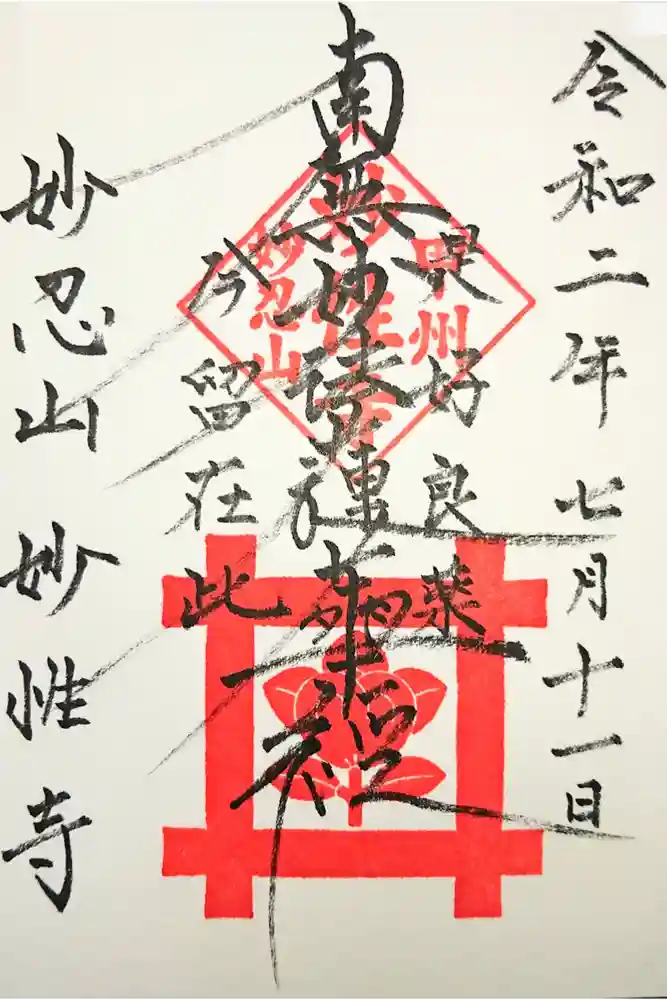 令和二年七月十一日
是好良薬
南無妙法蓮華経
今留在此
妙忍山 妙性寺
甲州
妙性寺
妙忍山